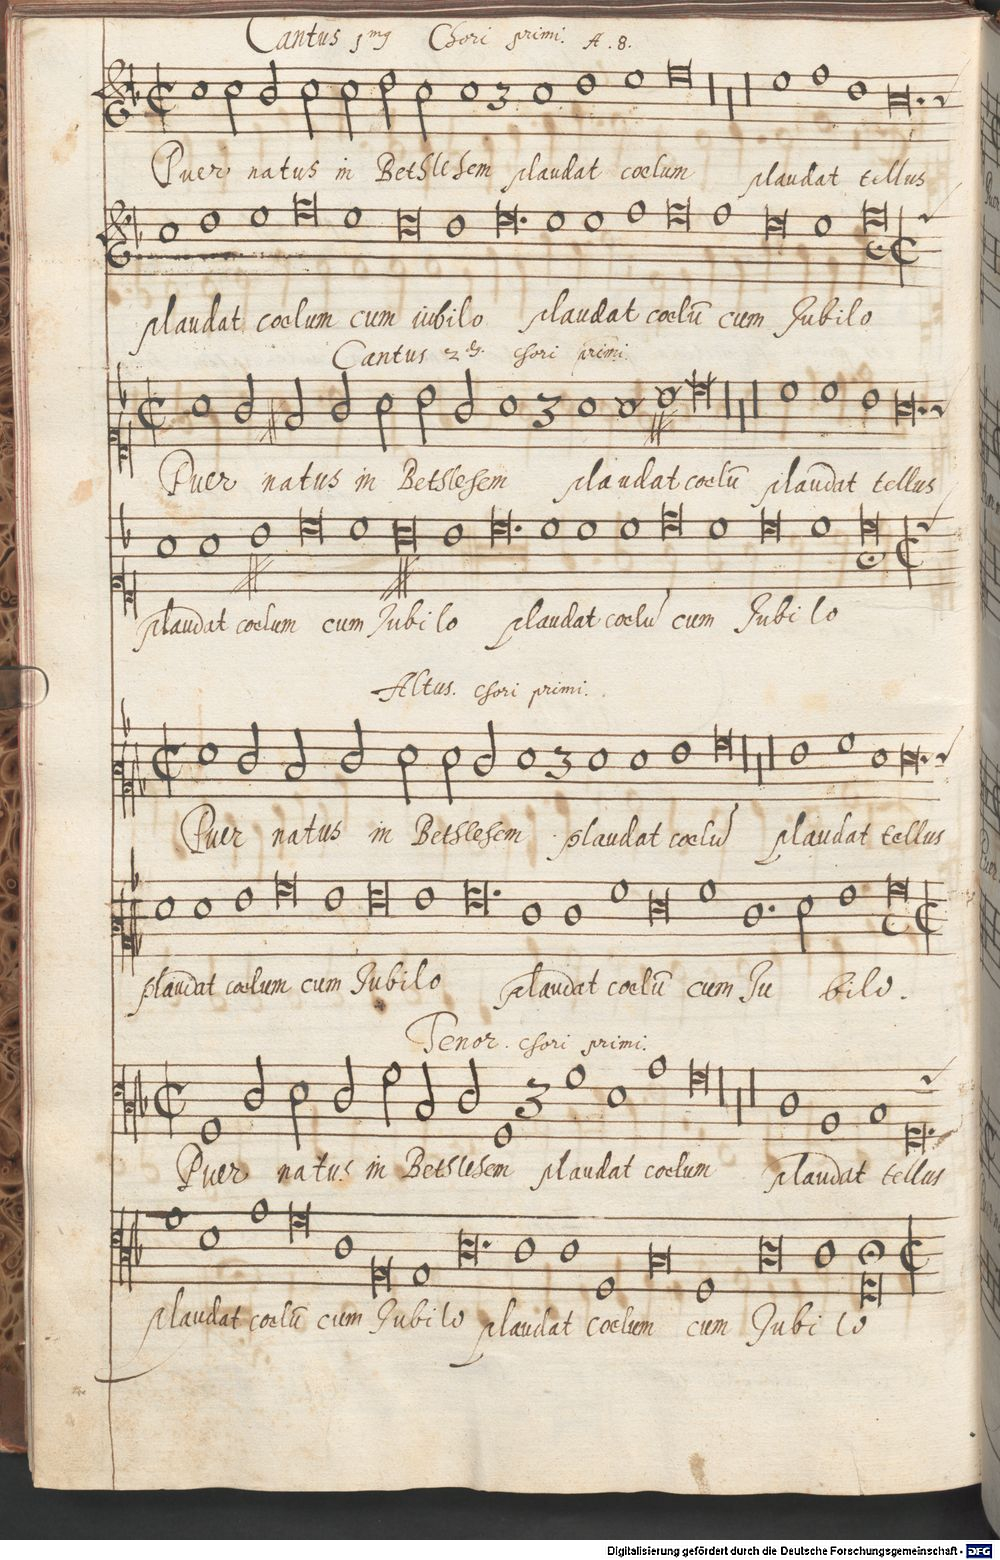 Cantus 1mg Chori primi. A. 8.
Puer natus in Bethlehem plaudat coelum plaudat tellus
plaudat coelum cum iubilo plaudat coelū cum Jubilo
Cantus 2ds. chori primi.
Puer natus in Bethlehem plaudat coelū plaudat tellus
plaudat coelum cum Jubilo plaudat coelū cum Jubilo
Altus. chori primi.
Puer natus in Bethlehem plaudat coelū plaudat tellus
plaudat coelum cum Jubilo plaudat coelū cum Ju bilo.
Tenor. chori primi.
Puer natus in Bethlehem plaudat coelum plaudat tellus
plaudat coelū cum Jubilo plaudat coelum cum Jubilo
Digitalisierung gefördert durch die Deutsche Forschungsgemeinschaft - DFG